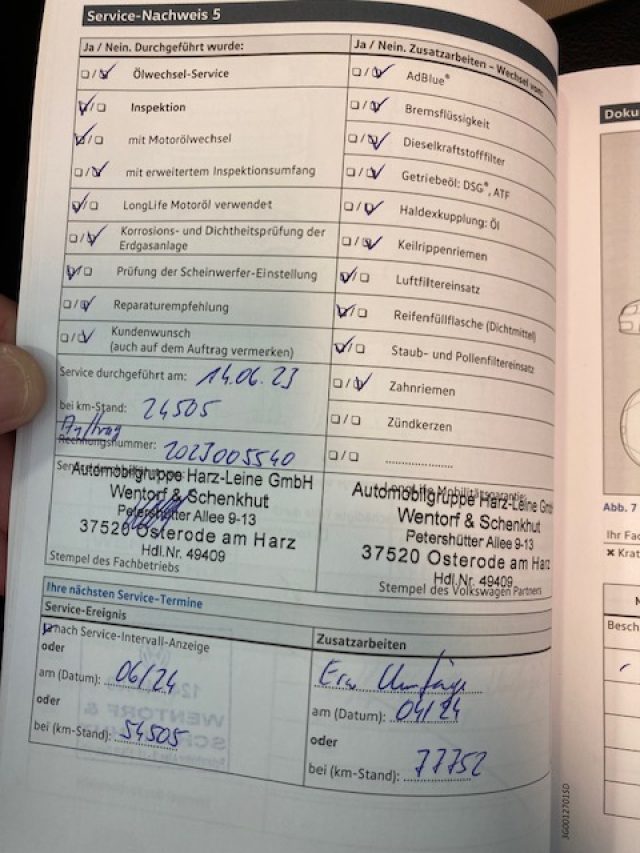 Service-Nachweis 5
Ja / Nein. Durchgeführt wurde:
Ölwechsel-Service
Inspektion
mit Motorölwechsel
mit erweitertem Inspektionsumfang
LongLife Motoröl verwendet
Korrosions- und Dichtheitsprüfung der
Erdgasanlage
Prüfung der Scheinwerfer-Einstellung
Reparaturempfehlung
Kundenwunsch
(auch auf dem Auftrag vermerken)
Service durchgeführt am: 14.06.23
bei km-Stand: 24505
Auftrag
Rechnungsnummer: 2023005540
Automobilgruppe Harz-Leine GmbH
Wentorf & Schenkhut
Petershütter Allee 9-13
37520 Osterode am Harz
Hdl.Nr. 49409
Stempel des Fachbetriebs
Ja / Nein. Zusatzarbeiten – Wechsel von:
AdBlue®
Bremsflüssigkeit
Dieselkraftstofffilter
Getriebeöl: DSG®, ATF
Haldexkupplung: Öl
Keilrippenriemen
Luftfiltereinsatz
Reifenfüllflasche (Dichtmittel)
Staub- und Pollenfiltereinsatz
Zahnriemen
Zündkerzen
LongLife Mobilitätsgarantie:
Automobilgruppe Harz-Leine GmbH
Wentorf & Schenkhut
Petershütter Allee 9-13
37520 Osterode am Harz
Hdl.Nr. 49409
Stempel des Volkswagen Partners
Ihre nächsten Service-Termine
Service-Ereignis
nach Service-Intervall-Anzeige
oder
am (Datum): 06/24
oder
bei (km-Stand): 54505
Zusatzarbeiten
Erw Umfänge
am (Datum): 04/24
oder
bei (km-Stand): 77752
3G0012701SD
Doku
Abb. 7
Ihr Fa
Krat
Besch